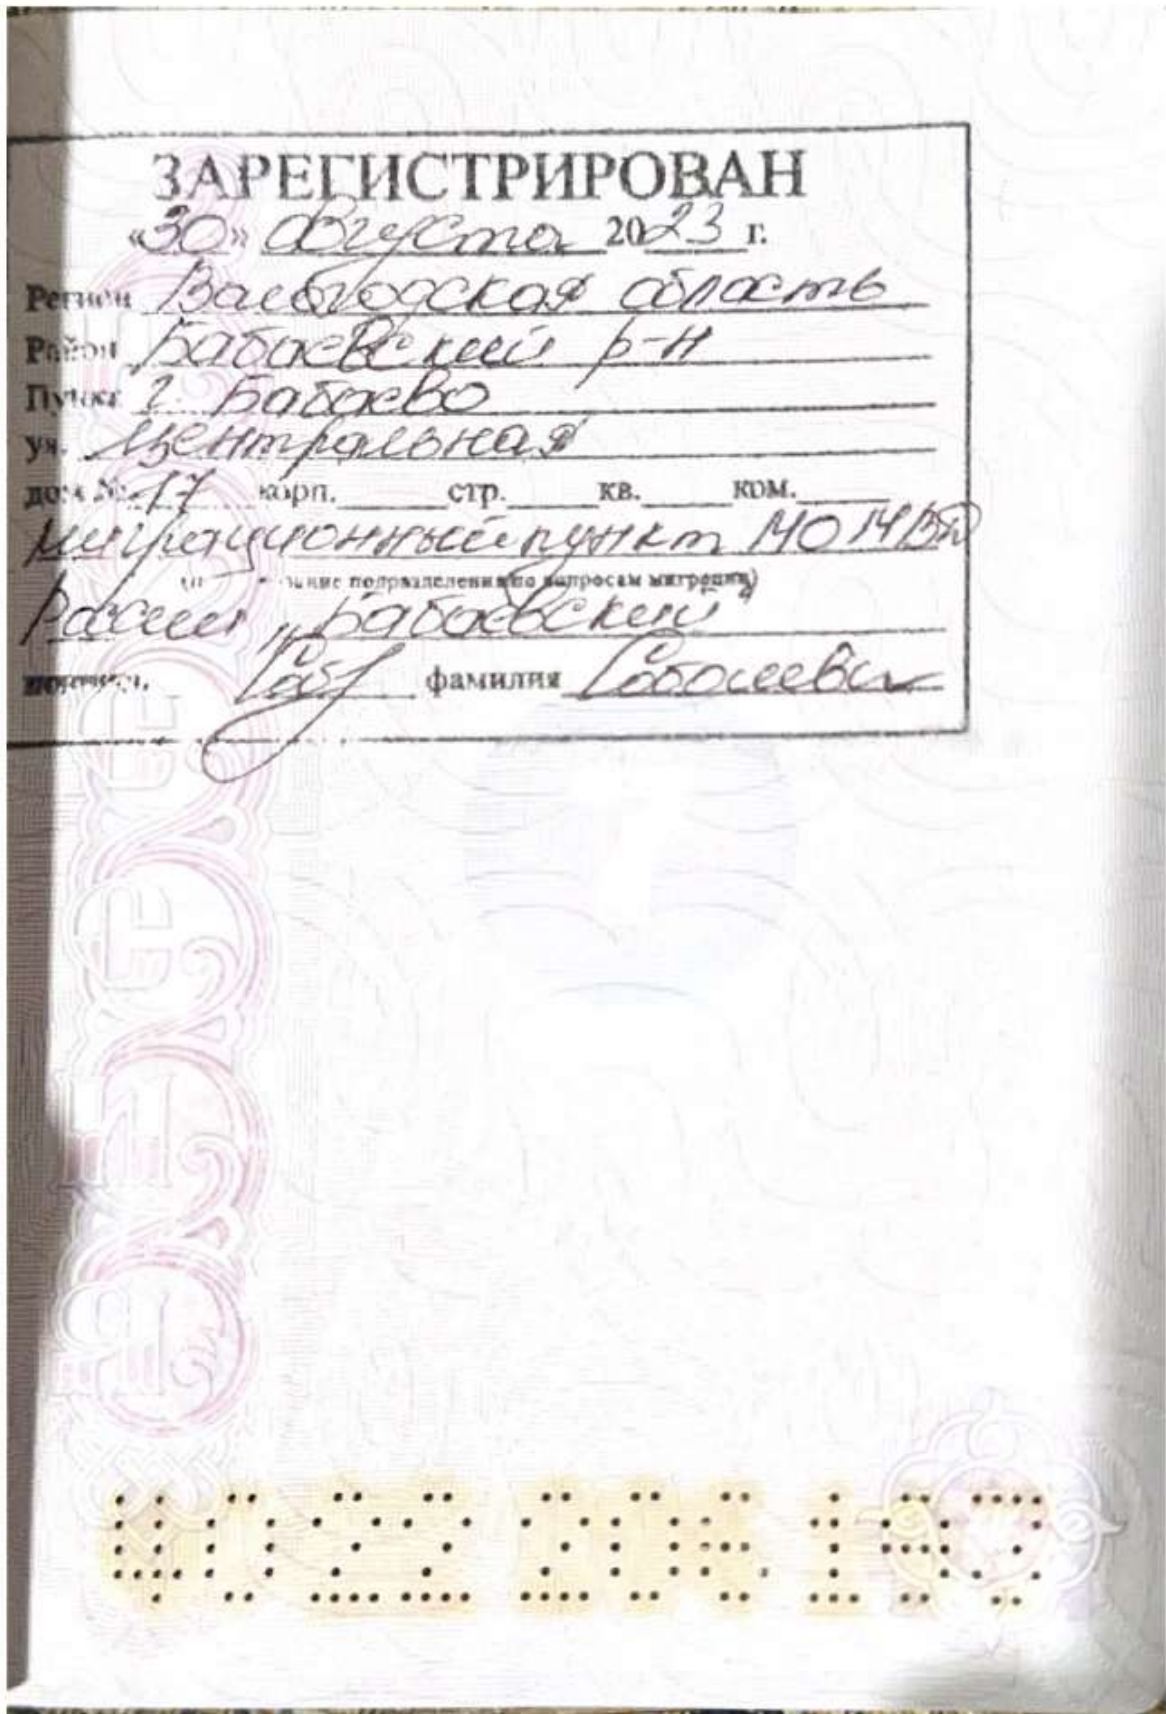 ЗАРЕГИСТРИРОВАН
«30» августа 2023 г.
Регион Вологодская область
Район Бабаевский р-н
Пункт г. Бабаево
ул. Центральная
дом № 17 корп. стр. кв. ком.
Миграционный пункт МО МВД
подразделения по вопросам миграции)
России „Бабаевский"
подпись. фамилия